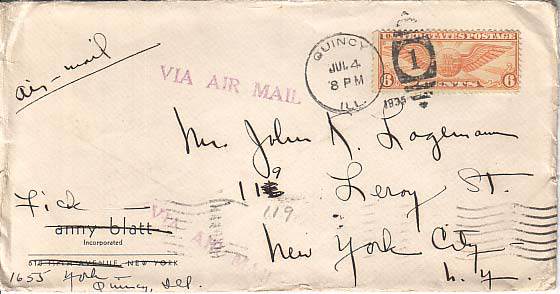 air-mail
VIA AIR MAIL
QUINCY
JUL 4
8 PM
ILL.
1935
1
UNITED STATES POSTAGE
6 CENTS 6
Mr. John K. Lagemann
119 Leroy St.
119
New York City
N.Y.
VIA AIR MAIL
Fick
anny blatt
Incorporated
AVENUE, NEW YORK
1655 York
Quincy, Ill.